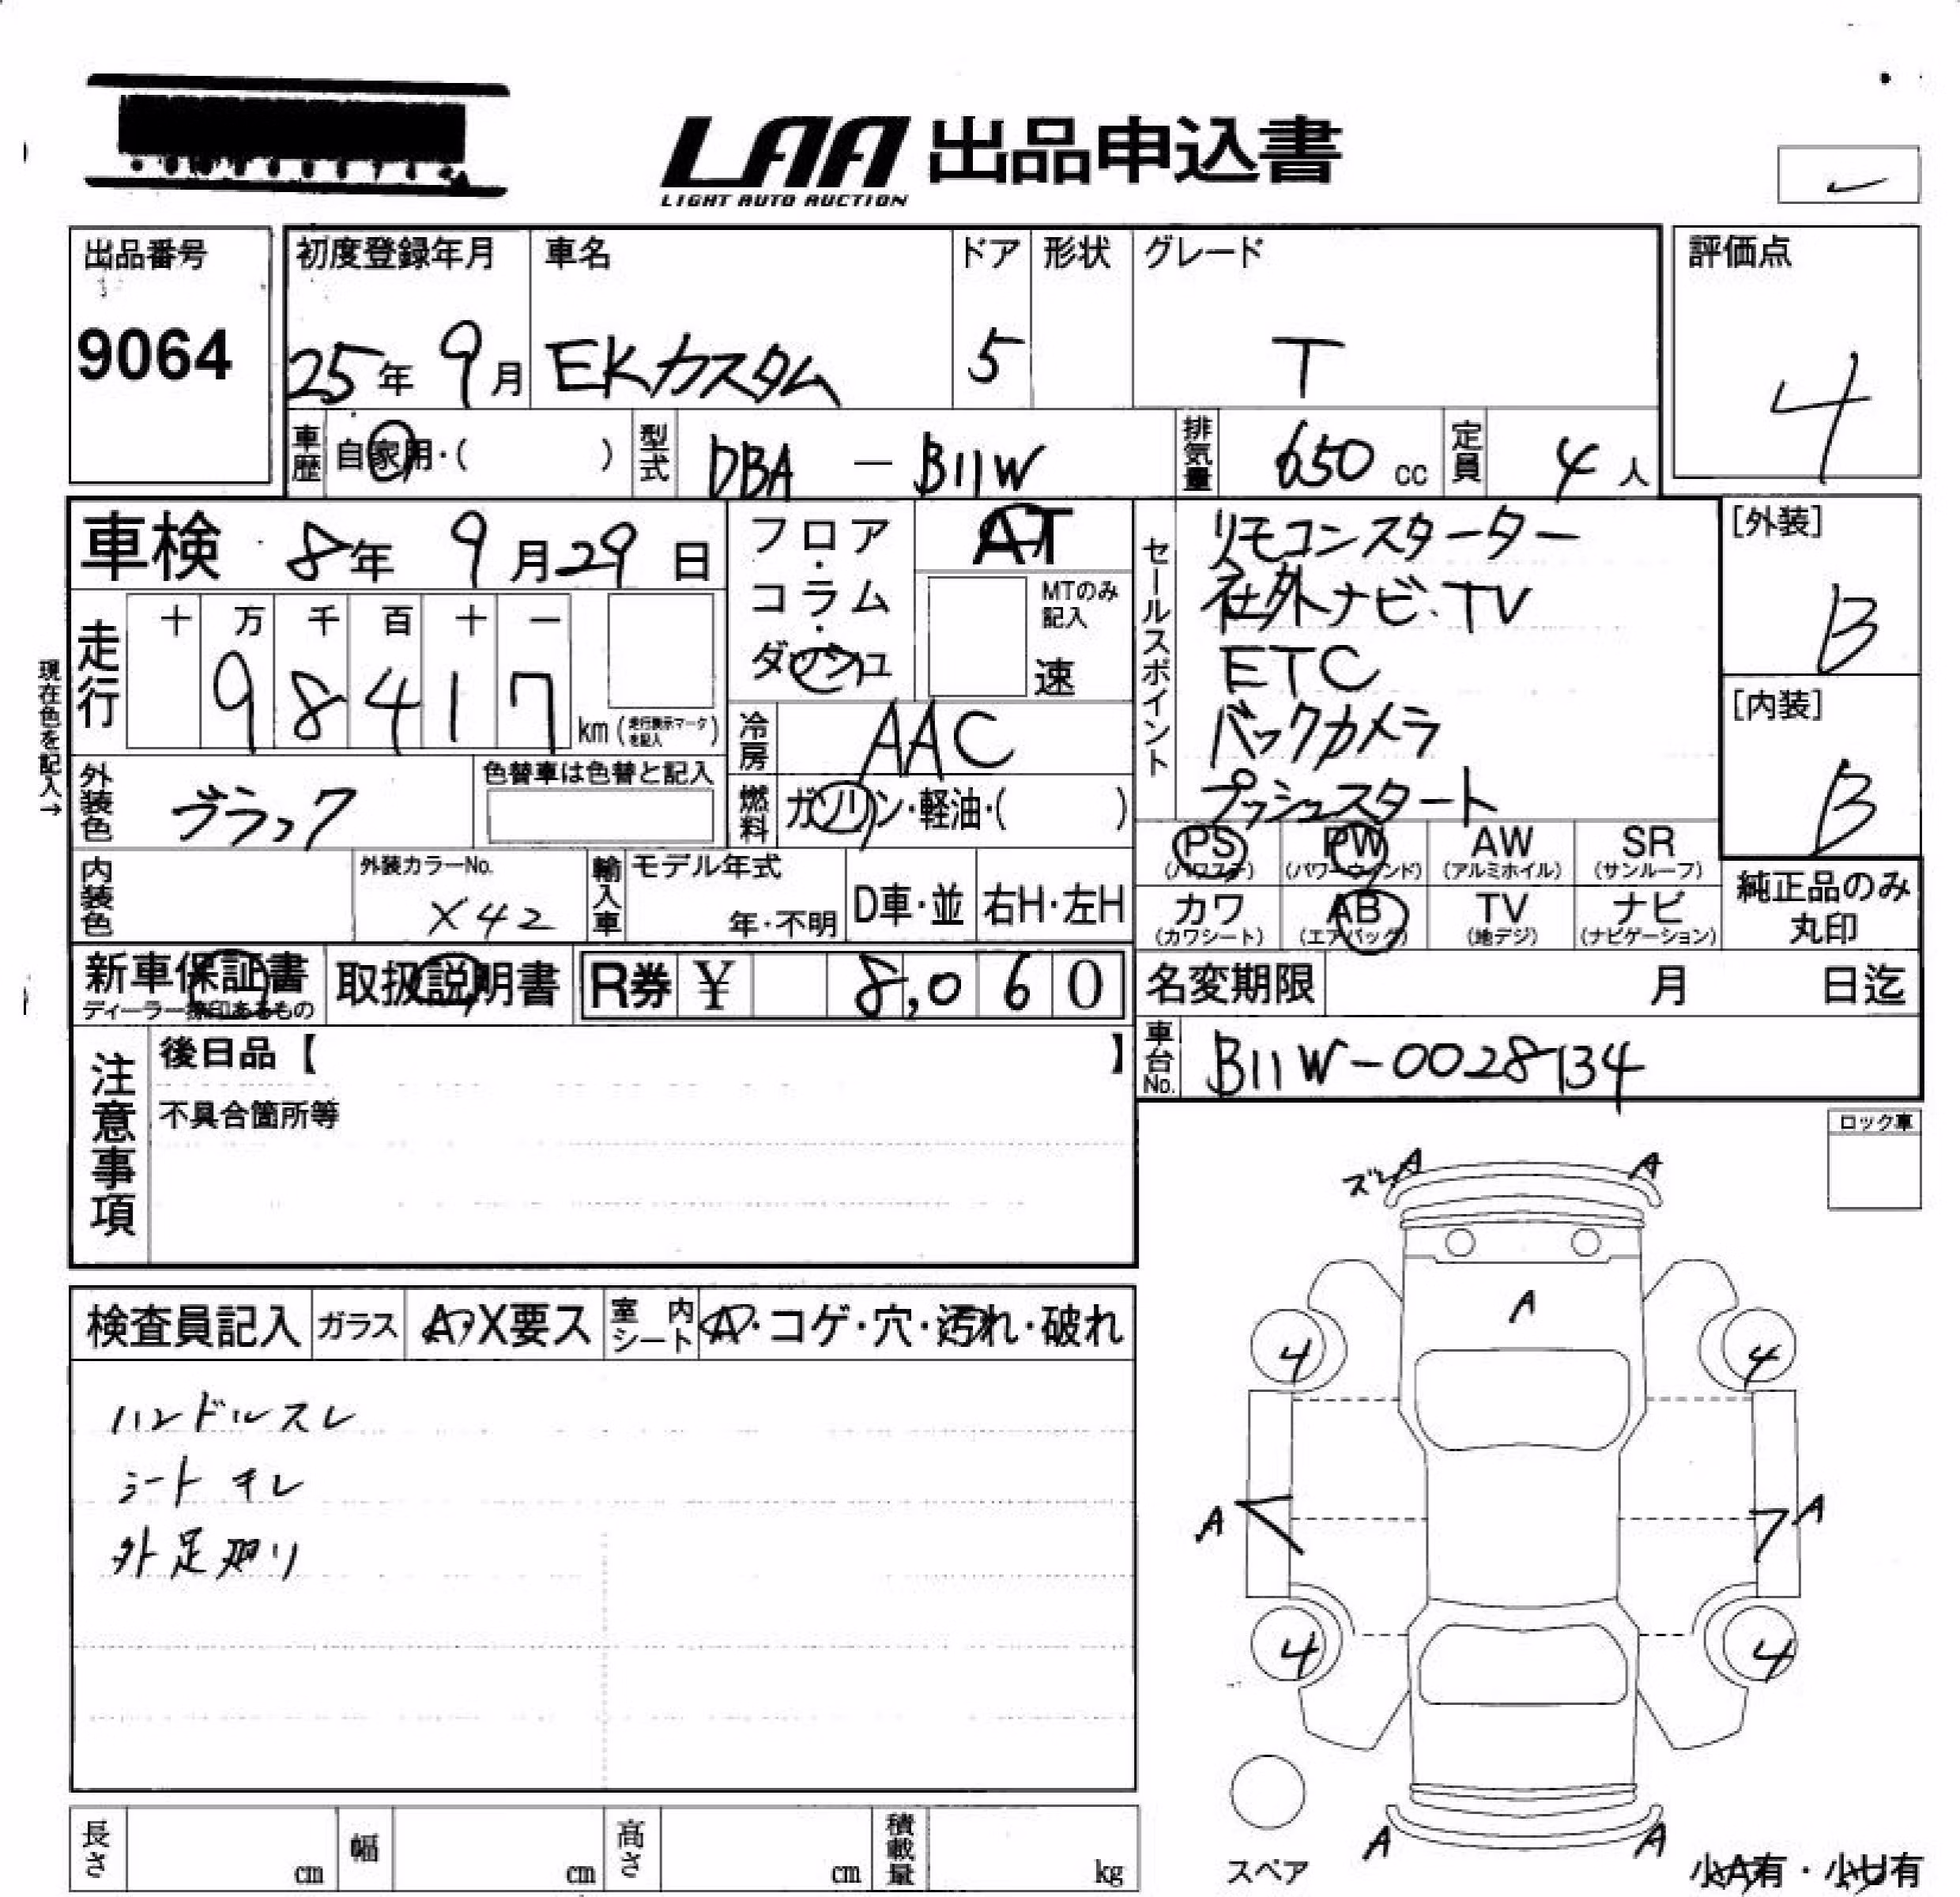 LAA 出品申込書
LIGHT AUTO AUCTION
出品番号
9064
初度登録年月 車名 ドア 形状 グレード
25年 9月 EKカスタム 5 T
評価点
4
車歴 自家用・( ) 型式 DBA - B11W 排気量 650 cc 定員 4 人
車検 8年 9月29日
フロア・コラム・ダッシュ
AT
MTのみ記入
速
セールスポイント
リモコンスターター
社外ナビ・TV
ETC
バックカメラ
プッシュスタート
[外装]
B
[内装]
B
現在色を記入→
走行 十 万 千 百 十 一
98417 km (走行表示マークを記入)
冷房 AAC
外装色 ブラック 色替車は色替と記入
燃料 ガソリン・軽油・( )
PS (パワステ) PW (パワーウィンド) AW (アルミホイル) SR (サンルーフ)
カワ (カワシート) AB (エアバッグ) TV (地デジ) ナビ (ナビゲーション)
純正品のみ丸印
内装色 外装カラーNo. X42
輸入車 モデル年式 年・不明 D車・並 右H・左H
新車保証書 取扱説明書 R券 ¥ 8,060
ディーラー捺印あるもの
名変期限 月 日迄
車台No. B11W-0028134
注意事項
後日品【 】
不具合箇所等
ロック車
ズレ A A
A
4 4
A A
4 4
A A
スペア
小A有・小U有
検査員記入 ガラス A・X要ス 室内シート A・コゲ・穴・汚れ・破れ
ハンドルスレ
シートキレ
外足廻り
長さ cm 幅 cm 高さ cm 積載量 kg